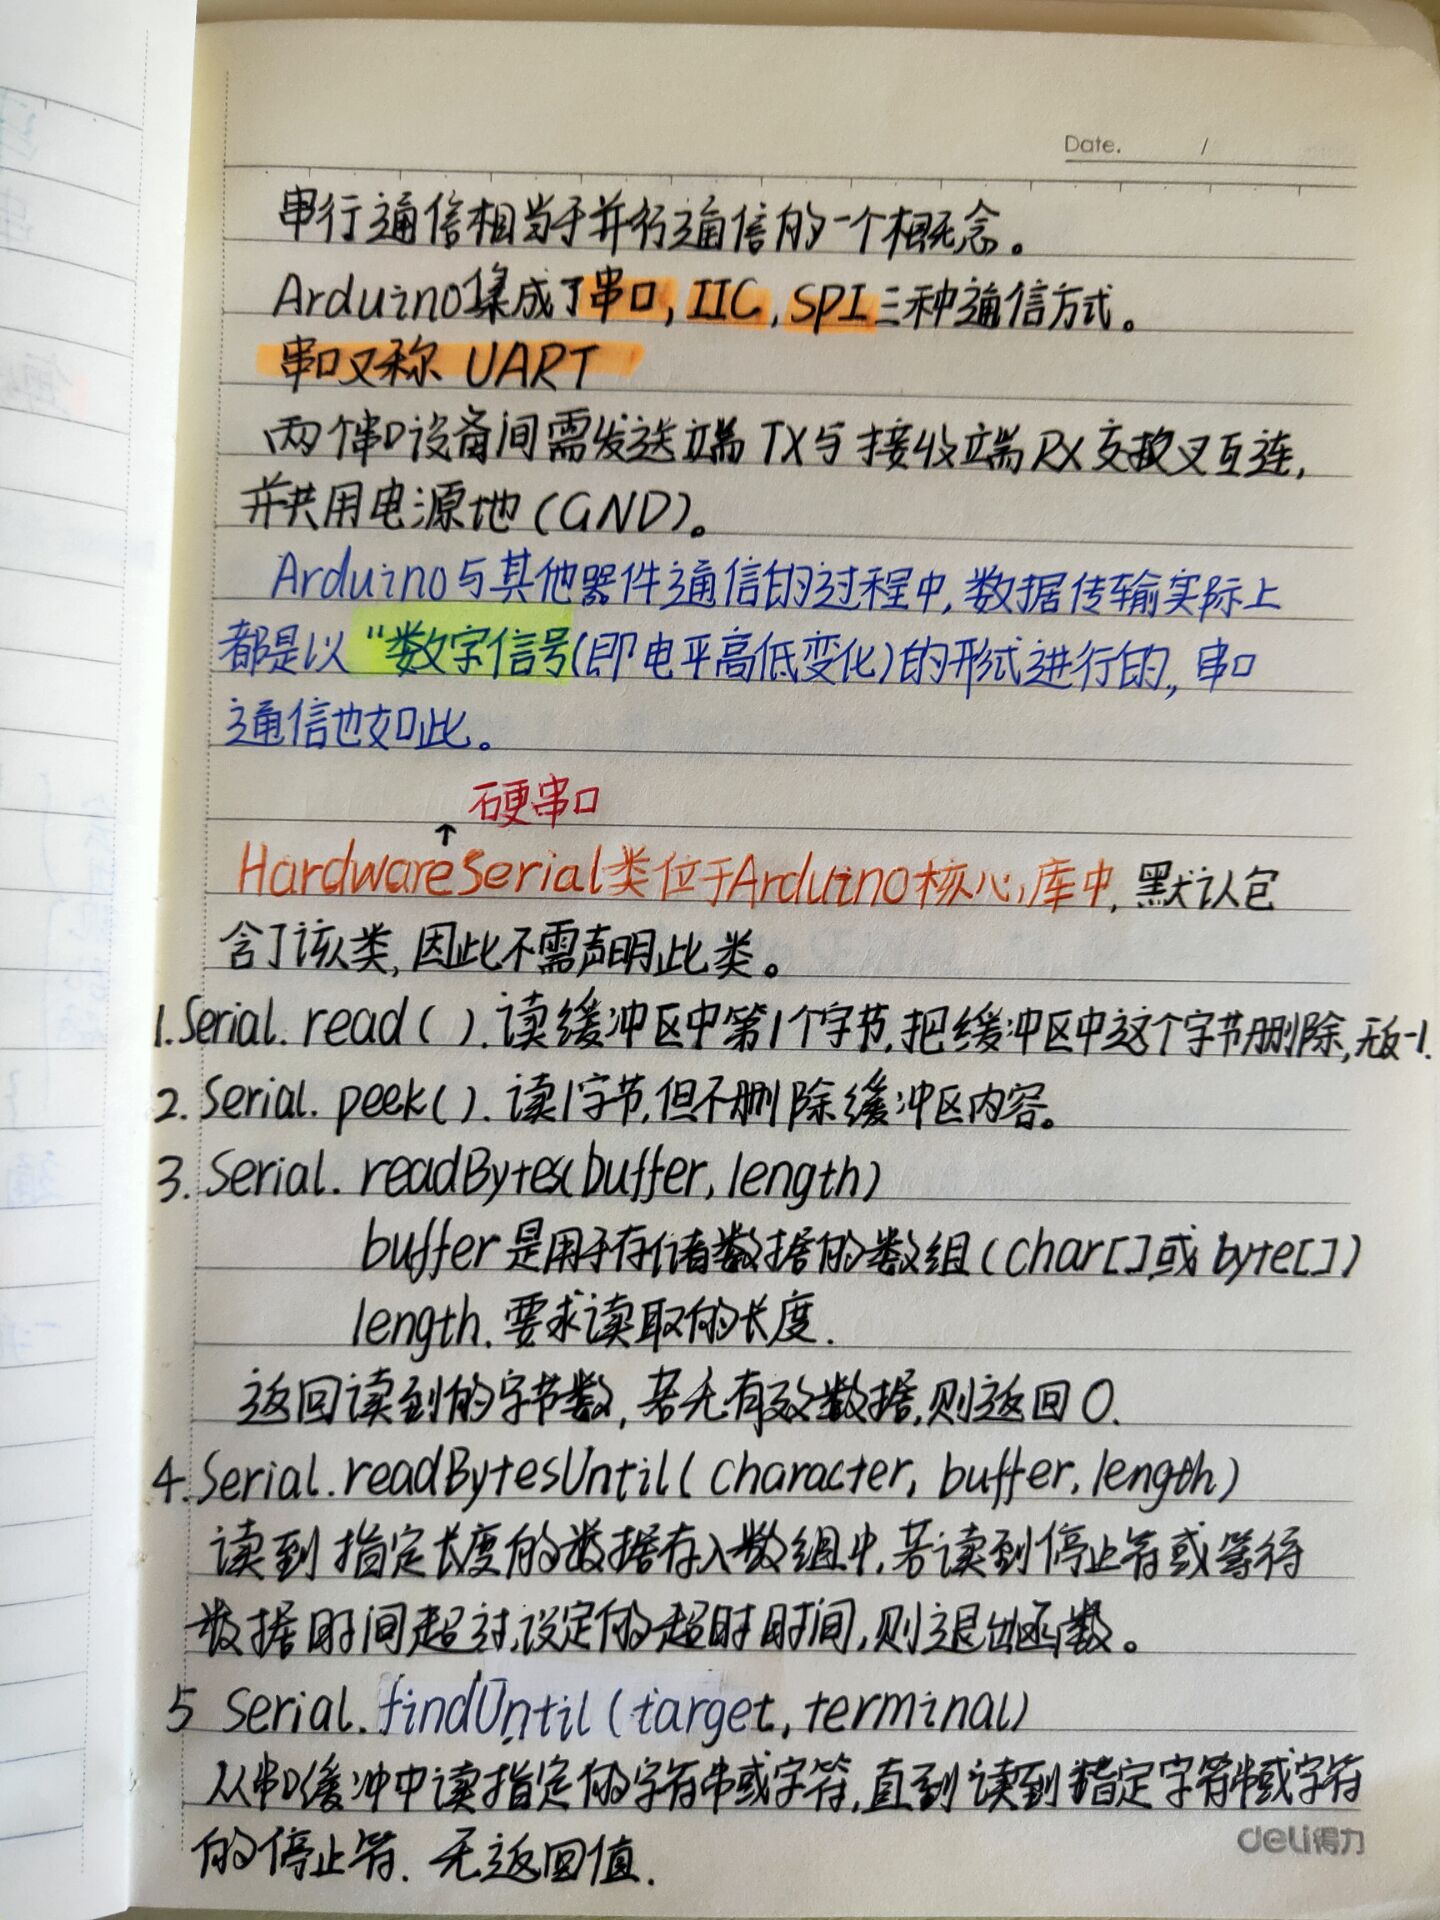 Date. /
串行通信相当于并行通信的一个概念。
Arduino集成了串口,IIC,SPI三种通信方式。
串口又称 UART
两个串口设备间需发送端TX与接收端RX交换叉互连,
并共用电源地(GND)。
Arduino与其他器件通信的过程中,数据传输实际上
都是以"数字信号(即电平高低变化)的形式进行的,串口
通信也如此。
硬串口
↑
HardwareSerial类位于Arduino核心库中,默认包
含了该类,因此不需声明此类。
1.Serial.read().读缓冲区中第1个字节,把缓冲区中这个字节删除,无返-1.
2.Serial.peek().读1字节,但不删除缓冲区内容。
3.Serial.readBytes(buffer,length)
buffer是用于存储数据的数组(char[]或byte[])
length.要求读取的长度.
返回读到的字节数,若无有效数据,则返回0.
4.Serial.readBytesUntil(character,buffer,length)
读到指定长度的数据存入数组中,若读到停止符或等待
数据时间超过,设定的超时时间,则退出函数。
5 Serial.findUntil(target,terminal)
从串口缓冲中读指定的字符串或字符,直到读到指定字符串或字符
的停止符.无返回值.
deli得力